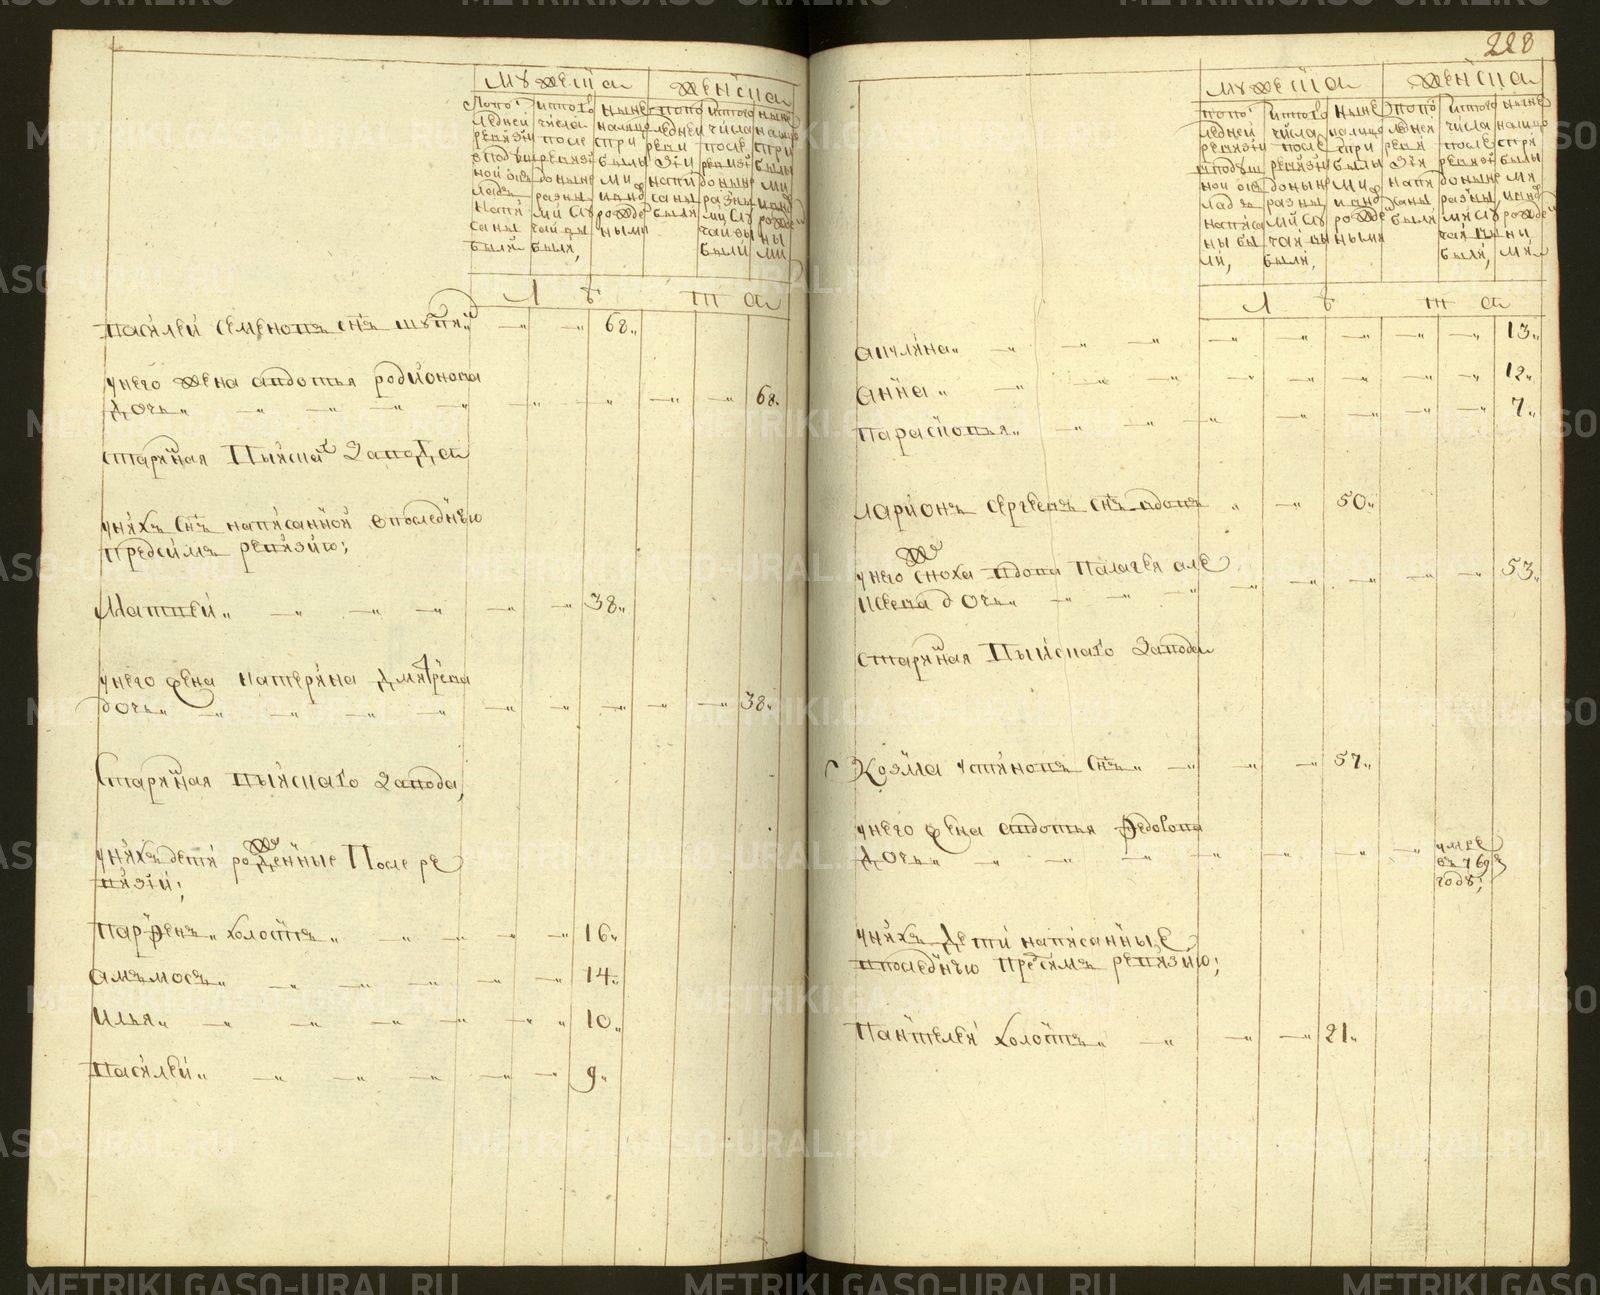 228
мужеска женска
попо следней ревизии в подушной оклад написаны были
ис того числа после ревизии до ныне разными случаи выбыли
ныне налицо с прибылыми и вновь рожденными
по последней ревизии написаны были
ис того числа после ревизии до ныне разными случаи выбыли
ныне налицо с прибылыми и вновь рожденными
Л ѣ т а
василей семеновъ снъ шубин 68
у него жена авдотья родионова
дочь 68
старинная Выискаго завода
у нихъ снъ написанной в последнюю
предсимъ ревизию;
Матвей 38
у него жена катерина дмитрева
дочь 38
Старинная выискаго завода,
у нихъ дети рожденные После ре
визии;
парфенъ холостъ 16
амъмосъ 14
илья 10
василей 9
мужеска женска
попоследней ревизии в подушной оклад написаны были,
ис того числа после ревизии до ныне разными случаи выбыли,
ныне налицо с прибылыми и вновь рожденными
по последней ревизия написаны были
ис того числа после ревизии до ныне разными случаи выбыли,
ныне налицо с прибылыми и вновь рожденными
Л ѣ т а
акилина 13
анна 12
парасковья 7
ларионъ сергеевъ снъ вдовъ 50
у него сноха вдова Палагея але
ксеева дочь 53
старинная Выискаго завода
Козма устиновъ снъ 57
у него жена авдотья Федосова
дочь умре
въ 769
году;
у нихъ Дети написанные
в последнюю предсимъ ревизию;
Пантелей холостъ 21
METRIKI.GASO-URAL.RU